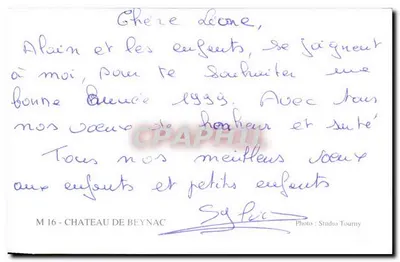 Chère Léone,
Alain et les enfants, se joignent
à moi, pour te souhaiter une
bonne année 1999. Avec tous
nos vœux de bonheur et santé
CPAPHIL
Tous nos meilleurs vœux
aux enfants et petits enfants
M 16 - CHATEAU DE BEYNAC
Photo : Studio Tourny